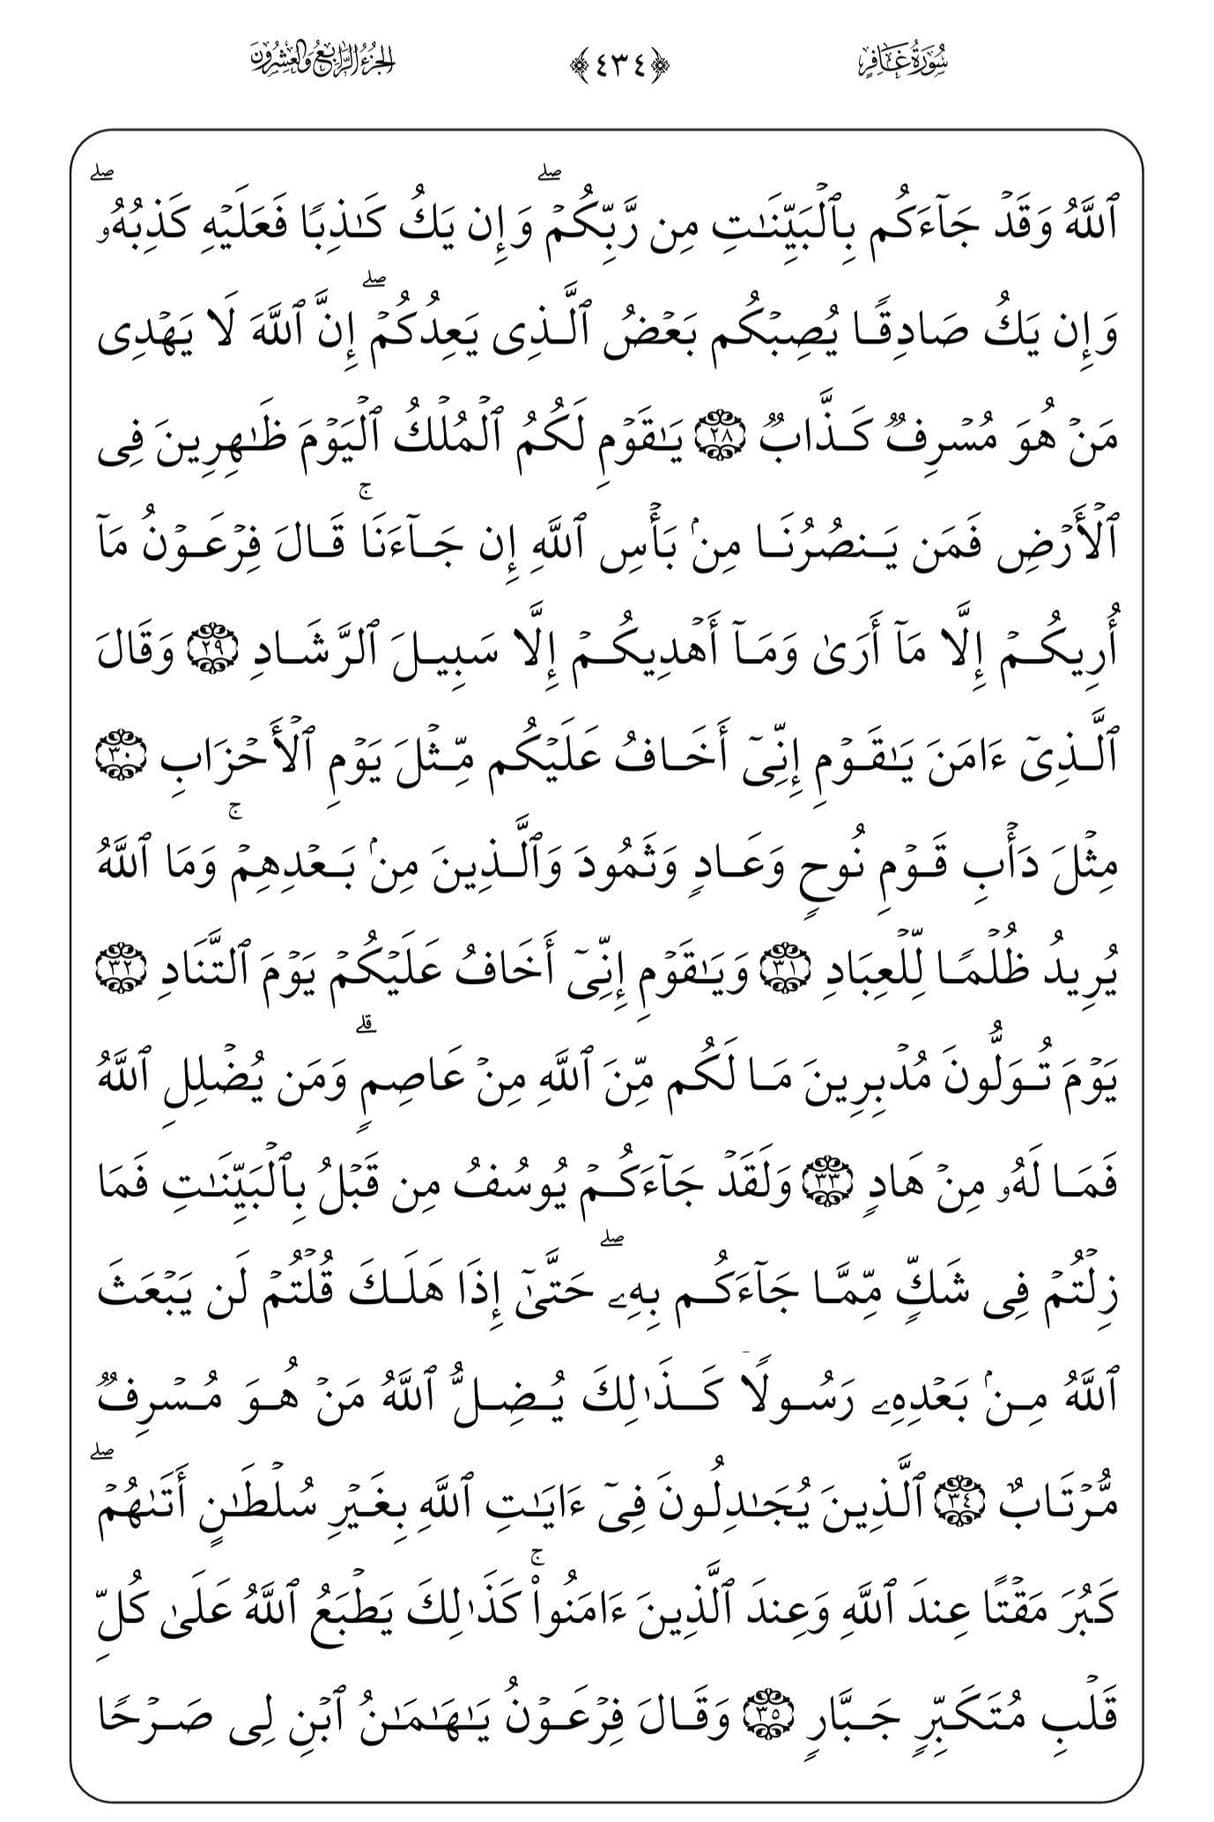 سُورَةُ غَافِرٍ ٤٣٤ الجُزْءُ الرَّابِعُ وَالْعِشْرُونَ
ٱللَّهُ وَقَدۡ جَآءَكُم بِٱلۡبَيِّنَٰتِ مِن رَّبِّكُمۡۖ وَإِن يَكُ كَٰذِبًا فَعَلَيۡهِ كَذِبُهُۥۖ
وَإِن يَكُ صَادِقًا يُصِبۡكُم بَعۡضُ ٱلَّذِى يَعِدُكُمۡۖ إِنَّ ٱللَّهَ لَا يَهۡدِى
مَنۡ هُوَ مُسۡرِفٌ كَذَّابٌ ٢٨ يَٰقَوۡمِ لَكُمُ ٱلۡمُلۡكُ ٱلۡيَوۡمَ ظَٰهِرِينَ فِى
ٱلۡأَرۡضِ فَمَن يَنصُرُنَا مِنۢ بَأۡسِ ٱللَّهِ إِن جَآءَنَاۚ قَالَ فِرۡعَوۡنُ مَآ
أُرِيكُمۡ إِلَّا مَآ أَرَىٰ وَمَآ أَهۡدِيكُمۡ إِلَّا سَبِيلَ ٱلرَّشَادِ ٢٩ وَقَالَ
ٱلَّذِىٓ ءَامَنَ يَٰقَوۡمِ إِنِّىٓ أَخَافُ عَلَيۡكُم مِّثۡلَ يَوۡمِ ٱلۡأَحۡزَابِ ٣٠
مِثۡلَ دَأۡبِ قَوۡمِ نُوحٍ وَعَادٍ وَثَمُودَ وَٱلَّذِينَ مِنۢ بَعۡدِهِمۡۚ وَمَا ٱللَّهُ
يُرِيدُ ظُلۡمًا لِّلۡعِبَادِ ٣١ وَيَٰقَوۡمِ إِنِّىٓ أَخَافُ عَلَيۡكُمۡ يَوۡمَ ٱلتَّنَادِ ٣٢
يَوۡمَ تُوَلُّونَ مُدۡبِرِينَ مَا لَكُم مِّنَ ٱللَّهِ مِنۡ عَاصِمٍۗ وَمَن يُضۡلِلِ ٱللَّهُ
فَمَا لَهُۥ مِنۡ هَادٍ ٣٣ وَلَقَدۡ جَآءَكُمۡ يُوسُفُ مِن قَبۡلُ بِٱلۡبَيِّنَٰتِ فَمَا
زِلۡتُمۡ فِى شَكٍّ مِّمَّا جَآءَكُم بِهِۦۖ حَتَّىٰٓ إِذَا هَلَكَ قُلۡتُمۡ لَن يَبۡعَثَ
ٱللَّهُ مِنۢ بَعۡدِهِۦ رَسُولًا كَذَٰلِكَ يُضِلُّ ٱللَّهُ مَنۡ هُوَ مُسۡرِفٌ
مُّرۡتَابٌ ٣٤ ٱلَّذِينَ يُجَٰدِلُونَ فِىٓ ءَايَٰتِ ٱللَّهِ بِغَيۡرِ سُلۡطَٰنٍ أَتَىٰهُمۡۖ
كَبُرَ مَقۡتًا عِندَ ٱللَّهِ وَعِندَ ٱلَّذِينَ ءَامَنُواْۚ كَذَٰلِكَ يَطۡبَعُ ٱللَّهُ عَلَىٰ كُلِّ
قَلۡبِ مُتَكَبِّرٍ جَبَّارٍ ٣٥ وَقَالَ فِرۡعَوۡنُ يَٰهَٰمَٰنُ ٱبۡنِ لِى صَرۡحًا